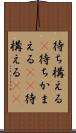 待ち構える
待ちかま
える 待
構える